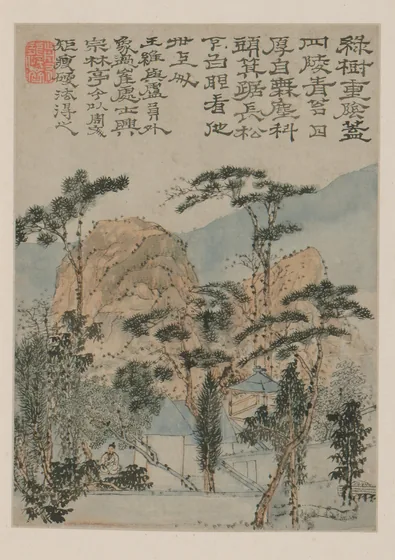 綠樹重陰蓋
四隣青苔日
厚自無塵科
頭箕踞長松
下白眼看他
世上人
王維與盧員外
象過崔處士興
宗林亭今以周
法得之